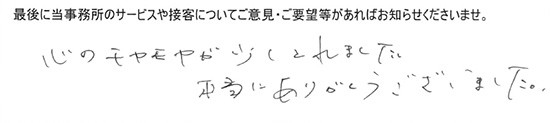 最後に当事務所のサービスや接客についてご意見・ご要望等があればお知らせくださいませ。
心のモヤモヤが少しとれました
本当にありがとうございました。